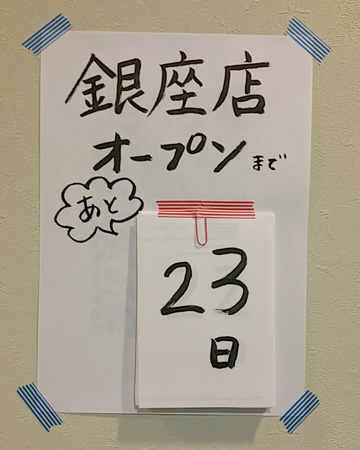 銀座店
オープンまで
あと
23
日